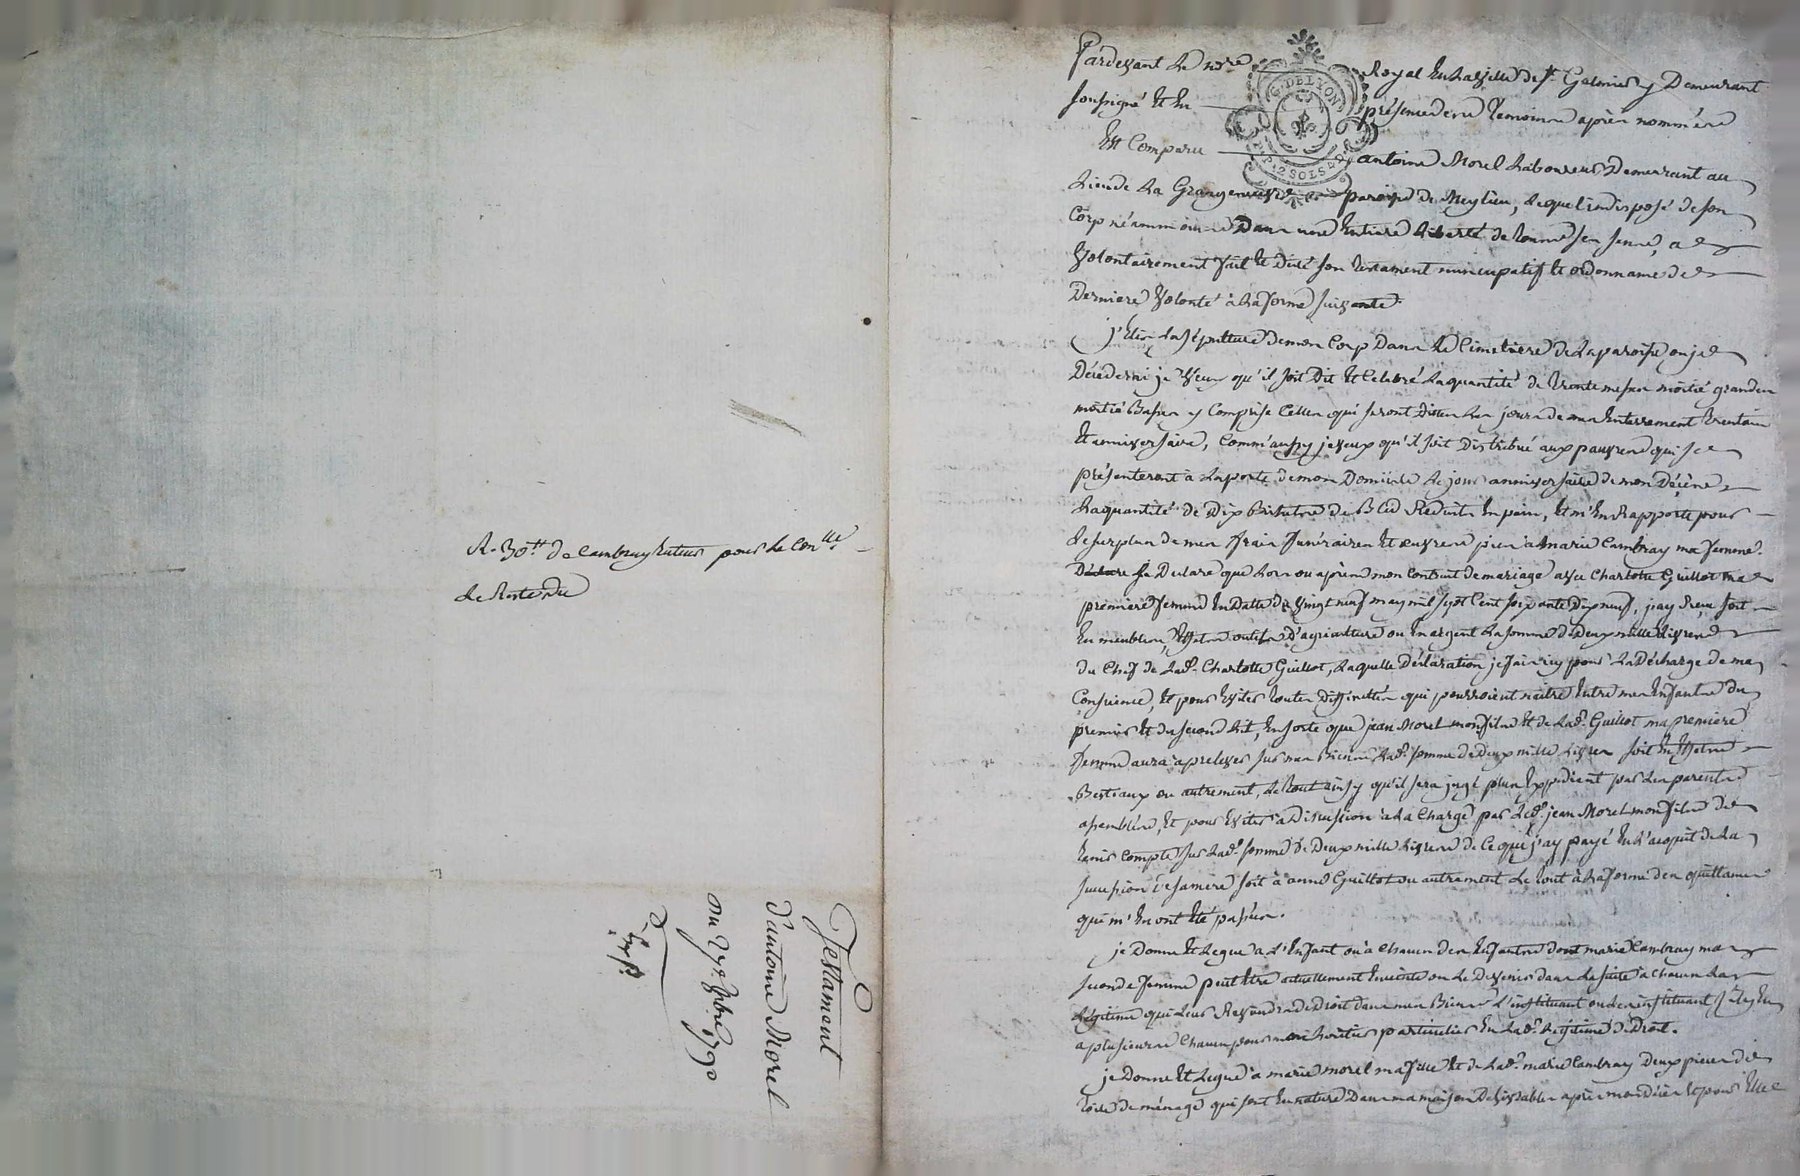 R. 30.tt de Cambray tuteur pour le Con.lle
de Reste Du
Testament
d'antoine Morel
Du 1790
Exp.
Pardevant Le nore Royal En la ville de St. Galmier y Demeurant
soussigné Et En présence des temoins après nommés
Est Comparu antoine Morel Laboureur Demeurant au
G. DE LYON
2 SOLS
Lieu de La Grangeneuve paroisse de Meylieu, Lequel indisposé de son
Corp néammoins Dans une Entiere Liberté de tous ses sens, a
Volontairement fait Et Dicté son testament nuncupatif Et ordonnance de
Derniere Volonté à la forme suivante
j'Elis La sépulture de mon Corp Dans Le Cimetiere de La paroisse ou je
Décederai je Veux qu'il soit Dit Et Celebré La quantité de trente messes moitié grandes
moitié Basses y Comprise Celles qui seront Dites Les jours de mon Enterrement trentain
Et anniversaire, Comm'aussy je veux qu'il soit Distribué aux pauvres qui se
présenteront à La porte de mon Domicile Le jour anniversaire de mon Décès
La quantité de Dix Bichets de Bled Reduits En pain, Et m'En Rapporte pour
Le surplus de mes frais funéraires Et œuvres pies à Marie Cambray ma femme.
Je Declare que Lors ou après mon Contrat de mariage avec Charlotte Guillot ma
premiere femme En Datte du Vingt neuf may mil sept Cent soixante Dix neuf, j'ay Reçu soit
En meubles, Effets outils D'agriculture ou En argent La somme de Deux mille Livres
du Chef de Lad. Charlotte Guillot, Laquelle Déclaration je fais icy pour La Décharge de ma
Conscience, Et pour Eviter toutes Difficultés qui pourroient naitre Entre mes Enfants du
premier Et du second Lit, En sorte que jean Morel mon fils Et de Lad. Guillot ma premiere
femme aura a prelever sur mes Biens Lad. somme de Deux mille Livres soit En Effets
Bestiaux ou autrement, Le tout ainsy qu'il sera jugé plus Expedient par Les parents
assemblés, Et pour Eviter a Discussion à La Charge par Led. jean Morel mon fils de
tenir Compte sur Lad. somme de Deux mille Livres de Ce que j'ay payé En L'acquit de La
succession De sa mere soit à anne Guillot ou autrement Le tout à La forme des quittances
qui m'En ont Eté passées.
je Donne Et Legue à L'Enfant ou à Chacun des Enfants dont marie Cambray ma
seconde femme peut Etre actuellement Enceinte ou Le Devenir dans La suite à Chacun La
Légitime qui Leur Reviendra de Droit dans mes Biens L'instituant ou Les instituant s'il y En
a plusieurs Chacun pour mon heritier particulier En Lad. Légitime de Droit.
je Donne Et Legue à marie morel ma fille Et de Lad. marie Cambray Deux pieces de
toile de ménage qui sont En nature Dans ma maison après mon décès Et pour Elle